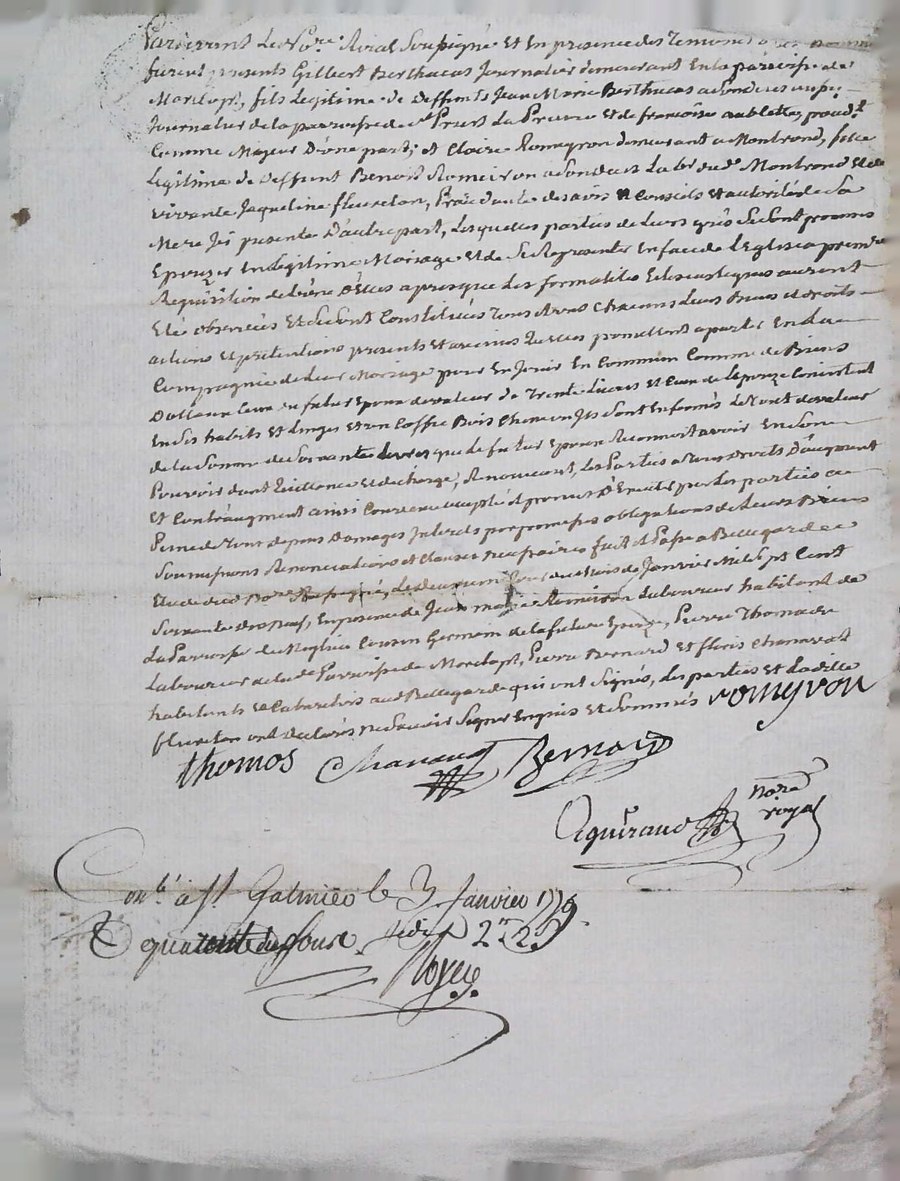 Pardevant le No.re Roial Soussigné et En presence des Temoins
furent presents Gilbert Berthucas Journalier demeurant En la paroisse de
Marclopt, fils Legitime de Deffunts Jean Marie Berthucas
Journalier de la parroisse de St Priest La Preuve et de francoise proced.t
Comme Majeur D'une part; et Claire Romeyron demeurant a Montrond, fille
Legitime de Deffunt Benoit Romeiron Montrond et de
vivante Jaqueline fleureton, Procedante des avis Conseils et autorité de Sa
Mere Ici presente D'autre part, Lesquelles parties de Leurs grés Se Sont promis
Epouzer En Legitime Mariage et de Se Representer En face de L'Eglise a premiere
Requisition de L'une D'Elles apres que Les formalités Eclesiastiques auront
Eté observées Et Se Sont Constitués Tous et uns Chacuns Leurs Biens et droits
actions et prétentions presents et avenirs qu'elles promettent aporter En La
Compagnie de Leur Mariage pour En Jouir En Commun Comme de Biens
Dottaux Ceux du futur Epoux de valeur de Trente Livres et Ceux de L'epouze Consistent
En Ses habits et Linges et un Coffre Bois Chene ou Ils Sont Enfermés Le Tout de valeur
de la Somme de Soixante Livres que le futur Epoux Reconnoit avoir En Son
Pouvoir dont Quittance et décharge, Renoncent, Les Parties a Tous droits D'augment
Et Contraugment ainsi Convenu accepté et promis D'Executer par Les parties a
Peine de Tous depens Domages Interets par promesses obligations de Leurs Biens
Soumissions Renonciations et Clauses necessaires fait et Passé a Bellegarde
Etude dud No.re Soussigné, Le Jour du Mois de Janvier Mil Sept Cent
Soixante dix neuf, En presence de Jean marie Romeiron Laboureur habitant de
La Parroisse de Cousin Germain de la future Epouze, Pierre Thomas
Laboureur de lad.e Parroisse de Marclopt, Pierre Bernard et fleuris Chanavat
habitants et Cabaretiers aud Bellegarde qui ont Signés, Les parties et Ladite
fleureton ont Declarés ne Savoir Signer Enquis et Sommés romeyron
thomas Chanavat Bernard
Aquiraud nore royal
Con.lé à St Galmier le 3 Janvier 1779.
Royer